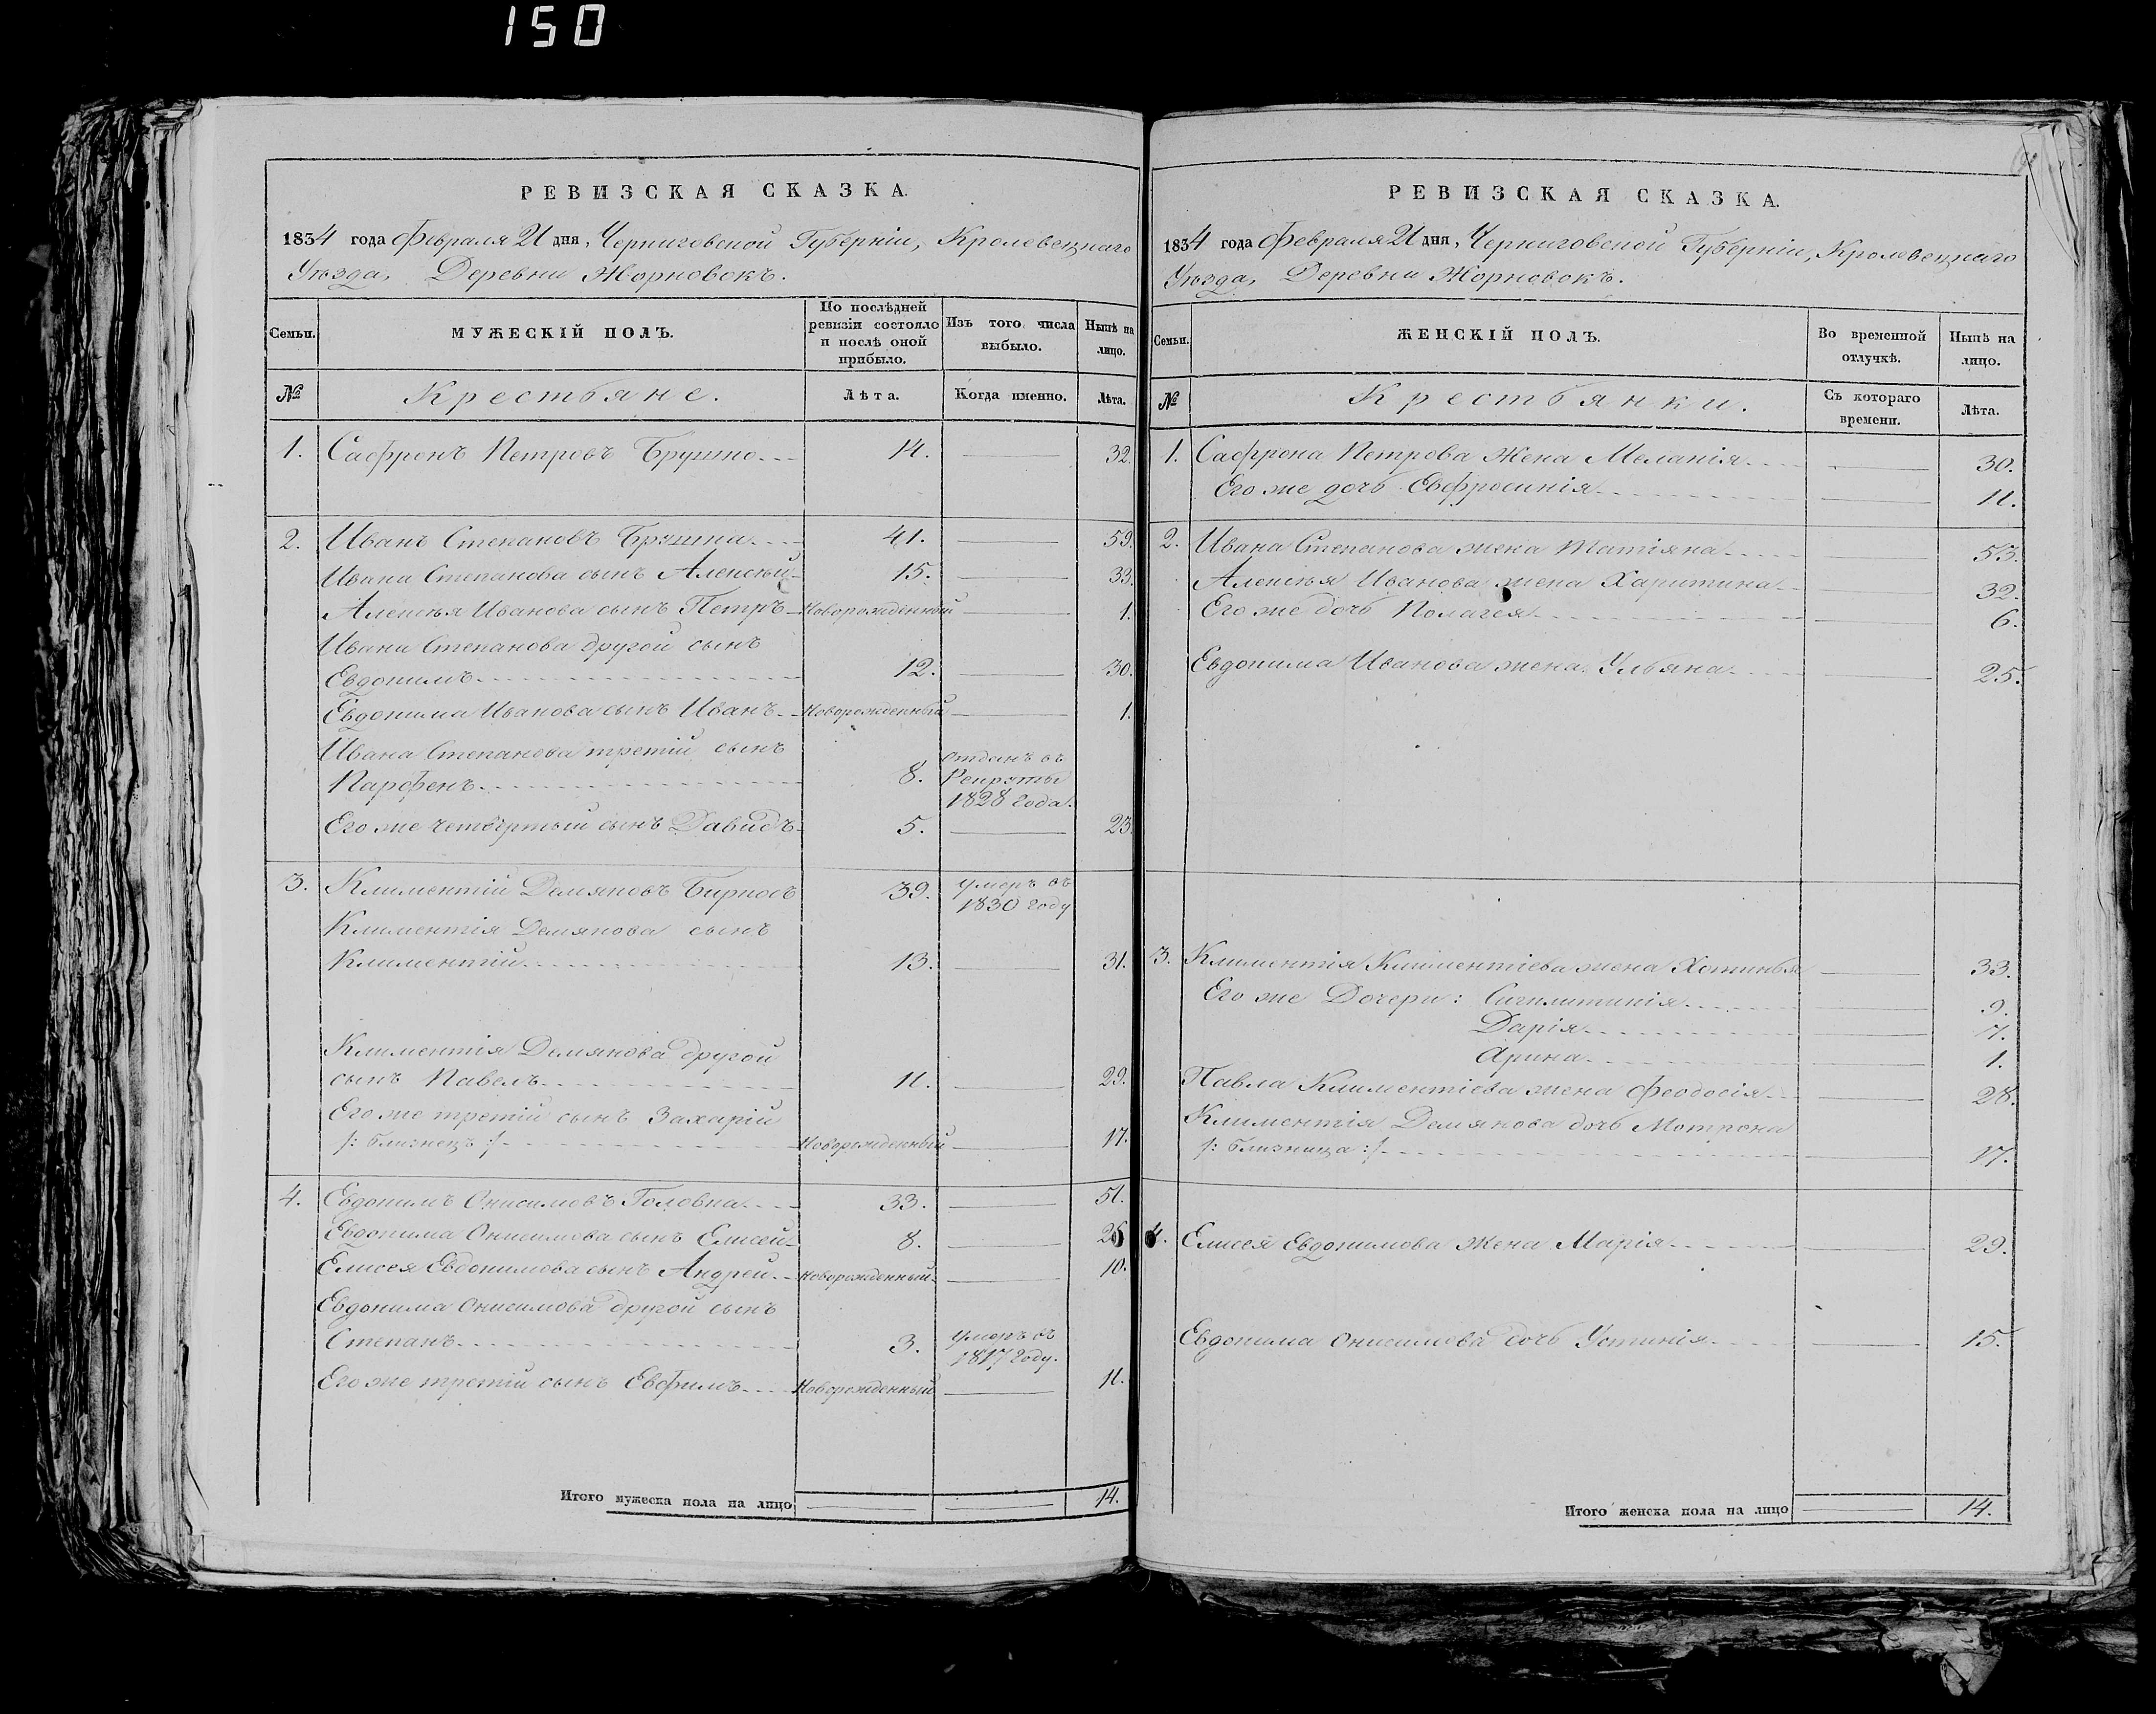 150
РЕВИЗСКАЯ СКАЗКА.
1834 года Февраля 21 дня, Черниговской Губерніи, Кролевецкаго
Уѣзда, Деревни Жорновокъ.
Семьи.
МУЖЕСКІЙ ПОЛЪ.
По послѣдней ревизіи состояло и послѣ оной прибыло.
Изъ того числа выбыло.
Нынѣ на лицо.
№
Крестьяне.
Лѣта.
Когда именно.
Лѣта.
1. Сафронъ Петровъ 14. 32.
2. Иванъ Степановъ 41. 59.
Ивана Степанова сынъ Алексѣй 15. 33.
Алексѣя Иванова сынъ Петръ Новорожденный 1.
Ивана Степанова другой сынъ
Евдокимъ 12. 30.
Евдокима Иванова сынъ Иванъ Новорожденный 1.
Ивана Степанова третій сынъ
Парфенъ 8. Отданъ въ Рекруты 1828 года.
Его же четвертый сынъ Давидъ 5. 23.
3. Климентій Демяновъ 39. умеръ въ 1830 году
Климентія Демянова сынъ
Климентій 13. 31.
Климентія Демянова другой
сынъ Павелъ 11. 29.
Его же третій сынъ Захарій
/: близнецъ :/ Новорожденный 17.
4. Евдокимъ Онисимовъ Головка 33. 51.
Евдокима Онисимова сынъ Елисей 8. 26
Елисея Евдокимова сынъ Андрей новорожденный 10.
Евдокима Онисимова другой сынъ
Степанъ 3. умеръ въ 1817 году.
Его же третій сынъ Евфимъ Новорожденный 11.
Итого мужеска пола на лицо 14.
РЕВИЗСКАЯ СКАЗКА.
1834 года Февраля 21 дня, Черниговской Губерніи, Кролевецкаго
Уѣзда, Деревни Жорновокъ.
Семьи.
ЖЕНСКІЙ ПОЛЪ.
Во временной отлучкѣ.
Нынѣ на лицо.
№
Крестьянки.
Съ котораго времени.
Лѣта.
1. Сафрона Петрова жена Меланія 30.
Его же дочь Евфросинія 11.
2. Ивана Степанова жена Татіяна 53.
Алексѣя Иванова жена Харитина 32.
Его же дочь Полагея 6.
Евдокима Иванова жена Ульяна 25.
3. Климентія Климентіева жена 33.
Его же Дочери: 9.
Дарія 7.
Арина 1.
Павла Климентіева жена Феодосія 28.
Климентія Демянова дочь Мотрона
/: близница :/ 17.
4. Елисея Евдокимова жена Марія 29.
Евдокима Онисимова дочь Устинія 15.
Итого женска пола на лицо 14.